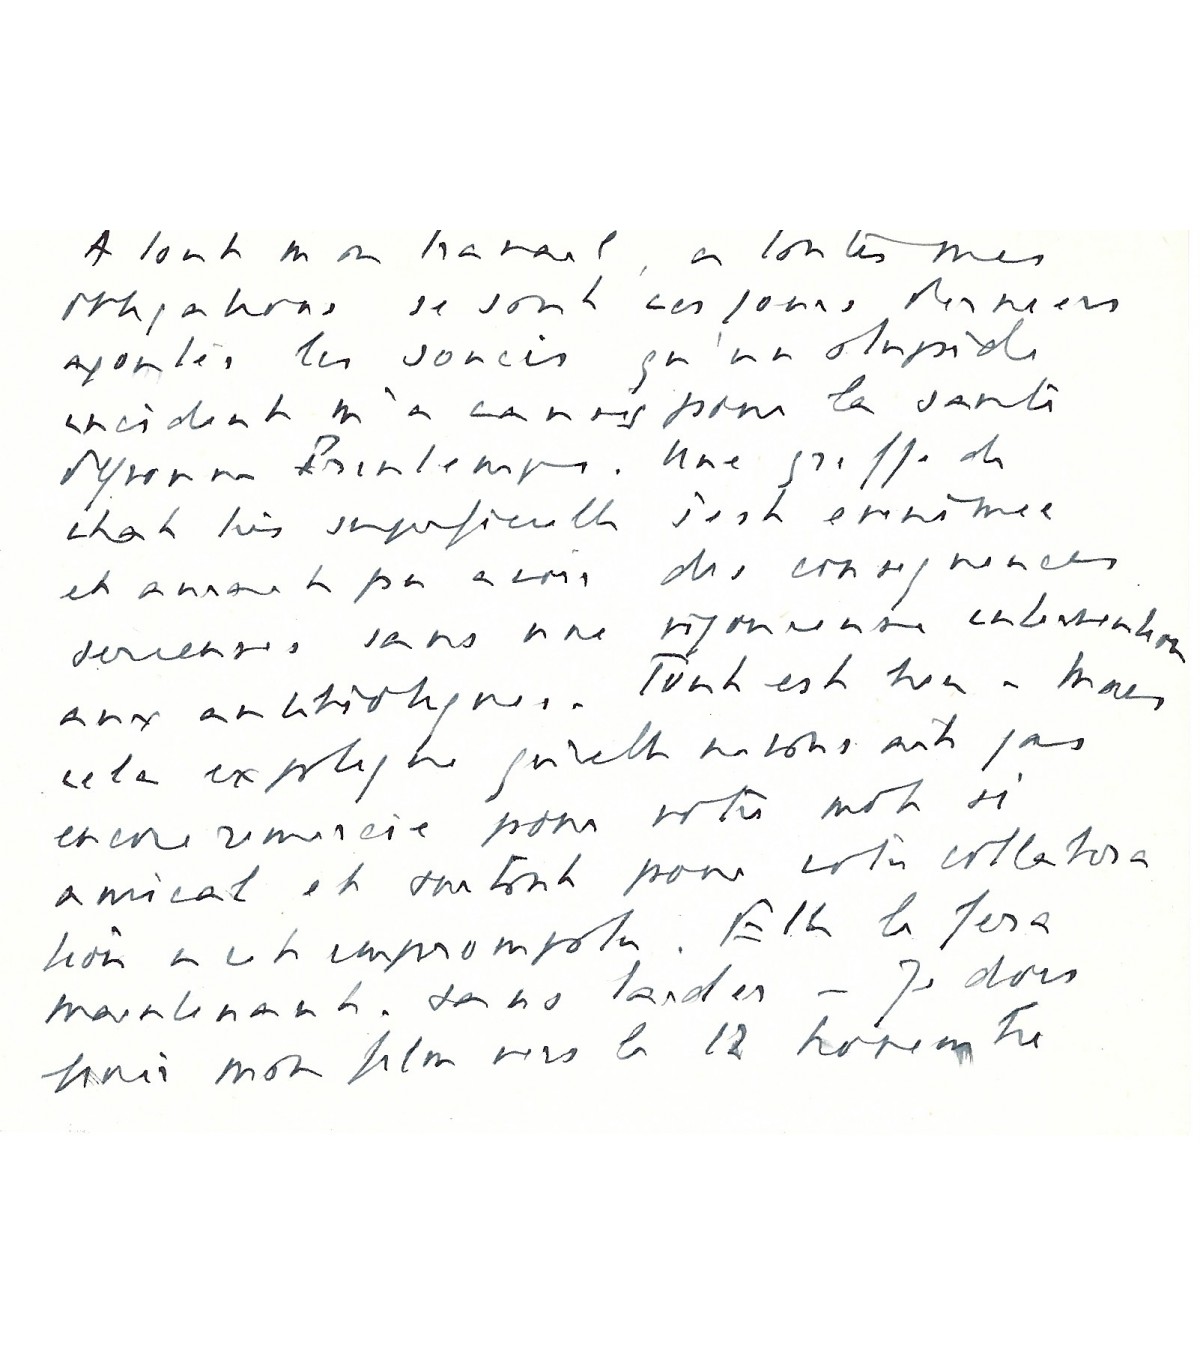 A tout mon travail, a toutes mes
obligations se sont ces jours derniers
ajoutés les soucis qu'un stupide
incident m'a causés pour la santé
d'Yvonne Printemps. Une griffe de
chat très superficielle s'est envenimée
et aurait pu avoir des consequences
serieuses sans une vigoureuse intervention
aux antibiotiques. Tout est bien - Mais
cela explique qu'elle ne vous ait pas
encore remercié pour votre mot si
amical et surtout pour votre collabora
tion a cet impromptu. Elle le fera
maintenant. sans tarder - Je dois
finir mon film vers le 12 novembre